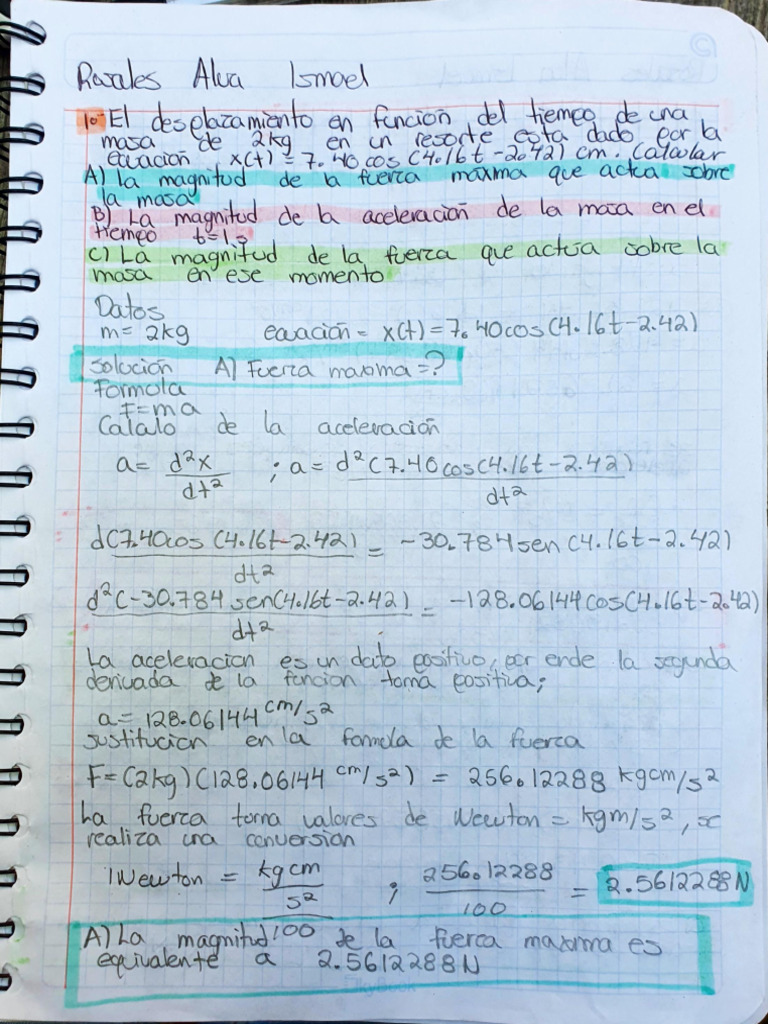 Rosales Alva Ismael
10- El desplazamiento en funcion del tiempo de una
masa de 2kg en un resorte esta dado por la
ecuación x(t) = 7.40cos (4.16t - 2.42) cm. Calcular
A) La magnitud de la fuerza maxima que actua sobre
la masa
B) La magnitud de la aceleración de la masa en el
tiempo t=1s
C) La magnitud de la fuerza que actua sobre la
masa en ese momento
Datos
m= 2kg ecuación = x(t) = 7.40cos(4.16t-2.42)
Solución A) Fuerza maxima=?
Formula
F=ma
Calculo de la aceleración
a= d²x/dt² ; a= d²(7.40cos(4.16t-2.42)/dt²
d(7.40cos (4.16t-2.42)/dt² = -30.784sen(4.16t-2.42)
d²(-30.784sen(4.16t-2.42)/dt² = -128.06144cos(4.16t-2.42)
La aceleracion es un dato positivo, por ende la segunda
derivada de la funcion toma positiva;
a= 128.06144 cm/s²
sustitucion en la formula de la fuerza
F=(2kg)(128.06144 cm/s²) = 256.12288 kgcm/s²
La fuerza toma valores de Newton = kgm/s², se
realiza una conversion
1Newton = kgcm/s²/100 ; 256.12288/100 = 2.5612288N
A) La magnitud de la fuerza maxima es
equivalente a 2.5612288N